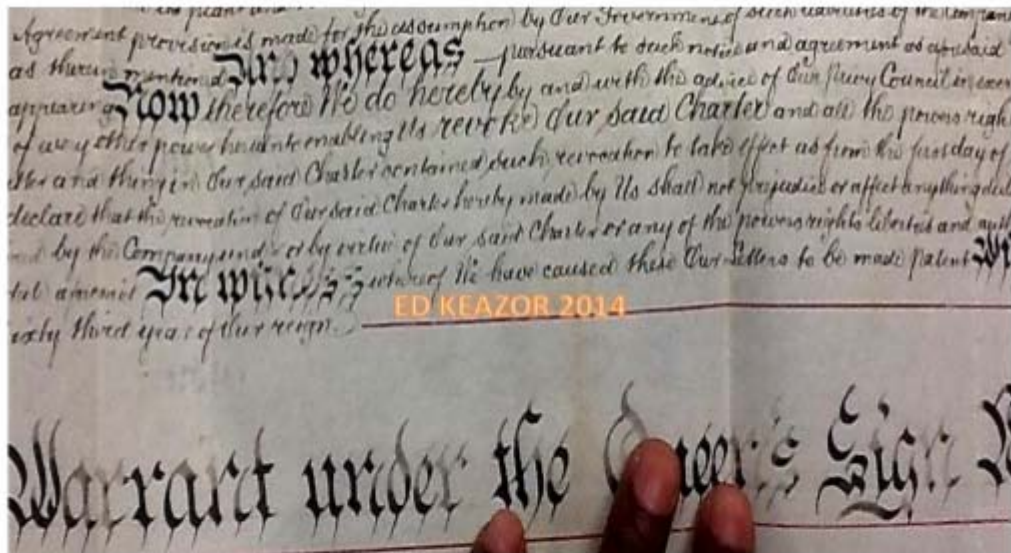 Agreement provision is made for the assumption by Our Government of such liabilities of the Company
as therein mentioned And whereas pursuant to such notice and agreement as aforesaid
appearing Now therefore We do hereby by and with the advice of Our Privy Council in
of any other power hereunto enabling Us revoke Our said Charter and all the powers
and thing in Our said Charter contained such revocation to take effect as from the first day of
declare that the revocation of Our said Charter hereby made by Us shall not prejudice or affect anything
by the Company under or by virtue of Our said Charter or any of the powers rights liberties and
In witness whereof We have caused these Our Letters to be made Patent
third year of Our reign
ED KEAZOR 2014
Warrant under the Queen's Sign